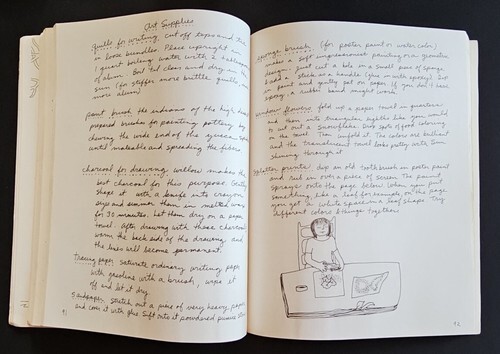 Art Supplies
quills for writing cut off tips and tie
in loose bundles. Place upright in
1 quart boiling water with 2 tablespoons
of alum. Boil til clear and dry in the
sun (for stiffer more brittle quills, use
more alum)
paint brush the indians of the high desert
prepared brushes for painting pottery by
chewing the wide end of the yucca
until malleable and spreading the fibers
charcoal for drawing willow makes the
best charcoal for this purpose. Gently
shape it with a knife into crayon
size and simmer them in melted wax
for 30 minutes. Let them dry on a paper
towel. After drawing with these charcoals
warm the back side of the drawing and
the lines will become permanent.
Tracing paper saturate ordinary writing paper
with gasoline with a brush, wipe it
off and let it dry
Sandpaper stretch out a piece of very heavy paper
and cover it with glue Sift onto it powdered pumice
91
sponge brush (for poster paint or water color)
makes a soft impressionist painting or a geometric
design. Just cut a hole in a small piece of sponge.
Add a stick as a handle (glue in with epoxy). Dip
in paint and gently put on paper. If you don't have
epoxy, a rubber band might work
window flowers fold up a paper towel in quarters
and then into triangular eighths like you wanted
to cut out a snowflake. Drop spots of food coloring
on the towel. Then unfold it. The colors are brilliant
and the translucent towel looks pretty with sun
shining through it
splatter prints dip an old toothbrush in poster paint
and rub it over a piece of screen. The paint
sprays onto the page below. When you put
something, like a leaf for example, on the page
you get a white space in a leaf shape. Try
different colors & things together
92